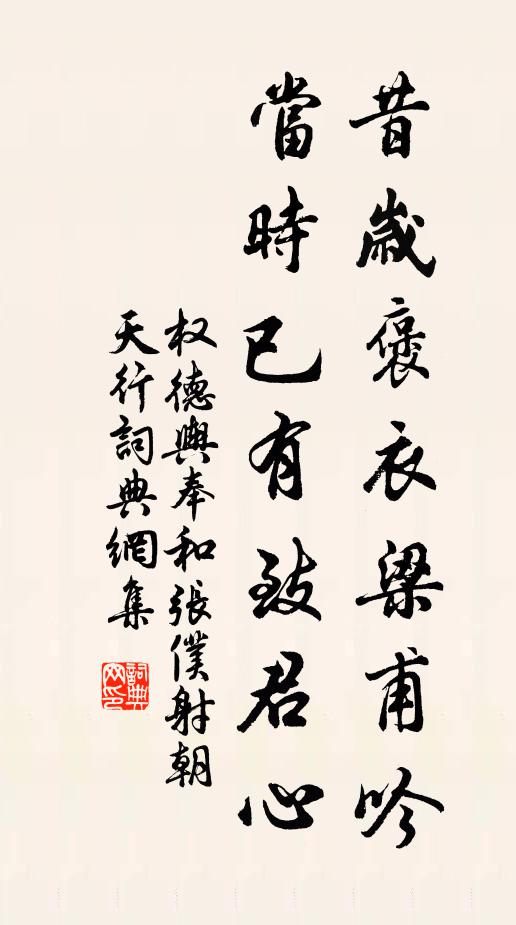 昔歲褒衣梁甫吟
當時已有致君心
权德輿奉和張僕射朝
天行詞典網集
詞典
网印